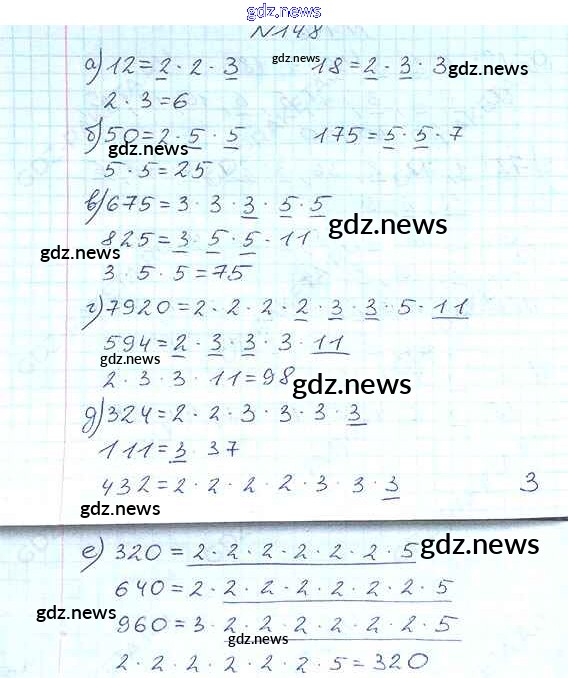 gdz.news
N148
gdz.news
а) 12=2·2·3 18=2·3·3
gdz.news
2·3=6
б) 50=2·5·5 175=5·5·7
gdz.news
5·5=25
в) 675=3·3·3·5·5
gdz.news
825=3·5·5·11
gdz.news
3·5·5=75
г) 7920=2·2·2·2·3·3·5·11
594=2·3·3·3·11
gdz.news
2·3·3·11=98
gdz.news
д) 324=2·2·3·3·3·3
111=3·37
432=2·2·2·2·3·3·3 3
gdz.news
е) 320=2·2·2·2·2·2·5
gdz.news
640=2·2·2·2·2·2·2·5
gdz.news
960=3·2·2·2·2·2·2·5
gdz.news
2·2·2·2·2·2·5=320